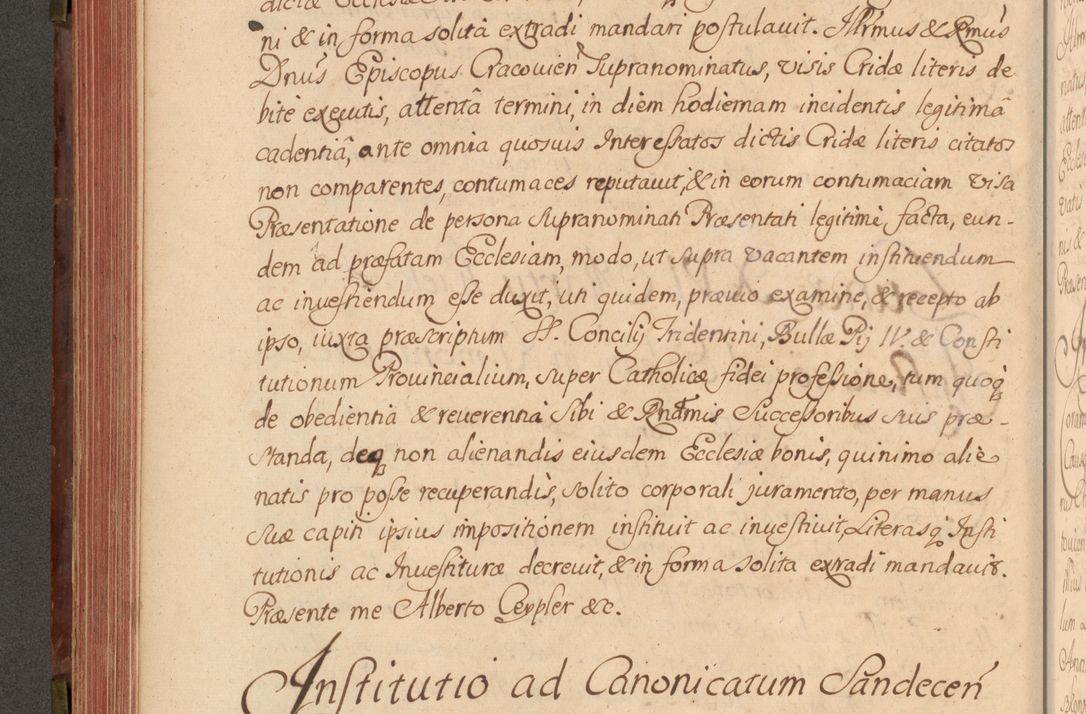 ni & in forma solita extradi mandari postulavit. Illrmus & Rmus
Dnus Episcopus Cracovien Supranominatus, visis Cridæ literis de
bite executis, attentâ termini, in diem hodiernam incidentis legitimâ
cadentiâ, ante omnia quosvis Interessatos dictis Cridæ literis citatos
non comparentes, contumaces reputavit, & in eorum contumaciam visa
Præsentatione de persona supranominati Præsentati legitimè facta, eun-
dem ad præfatam Ecclesiam, modo, ut supra vacantem instituendum
ac investiendum esse duxit, uti quidem, prævio examine, & recepto ab
ipso, iuxta præscriptum SS. Concilij Tridentini, Bullæ Pij IV. & Consti
tutionum Provincialium, super Catholicæ fidei professione, tum quoq
de obedientia & reverentia Sibi & Rndmis Successoribus suis præ-
standa, deq non alienandis eiusdem Ecclesiæ bonis, quinimo alie
natis pro posse recuperandis, solito corporali juramento, per manus
suæ capiti ipsius impositionem instituit ac investivit, Literasq Insti
tutionis ac Investituræ decrevit, & in forma solita extradi mandavit.
Præsente me Alberto Ceypler &c.
Institutio ad Canonicatum Sandecen